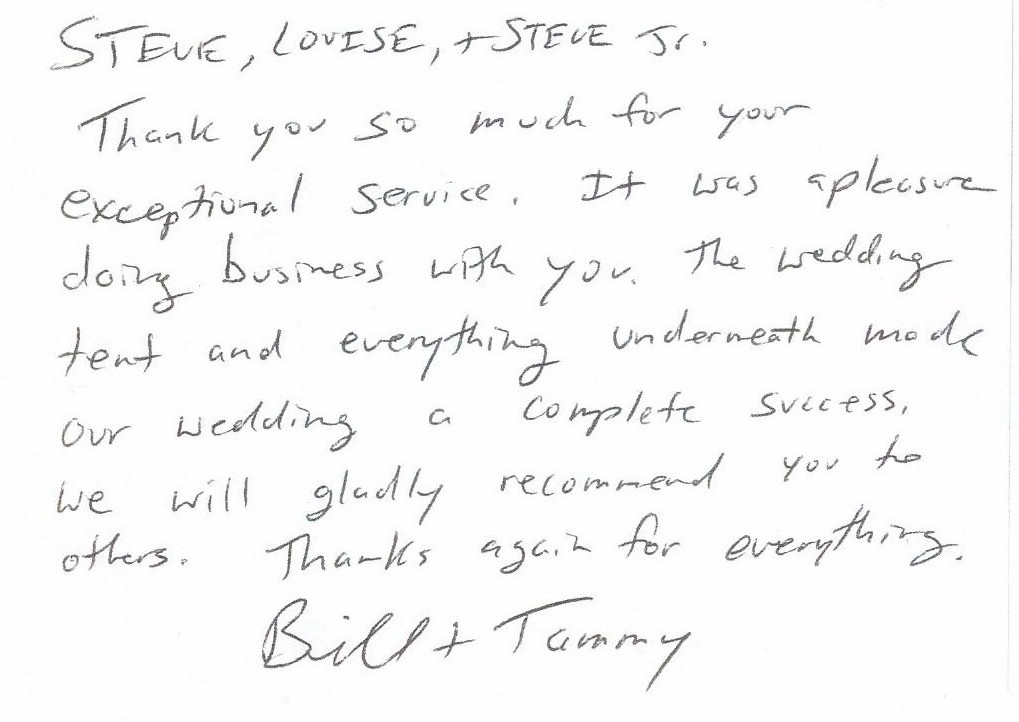 STEVE, LOUISE, + STEVE Jr.
Thank you so much for your
exceptional service. It was a pleasure
doing business with you. The wedding
tent and everything underneath made
our wedding a complete success.
We will gladly recommend you to
others. Thanks again for everything.
Bill + Tammy